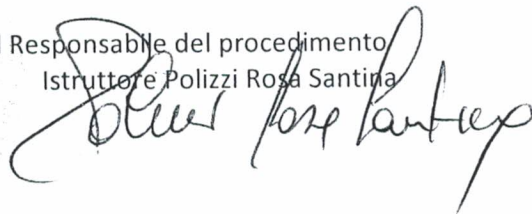 Responsabile del procedimento
Istruttore Polizzi Rosa Santina
Polizzi Rosa Santina